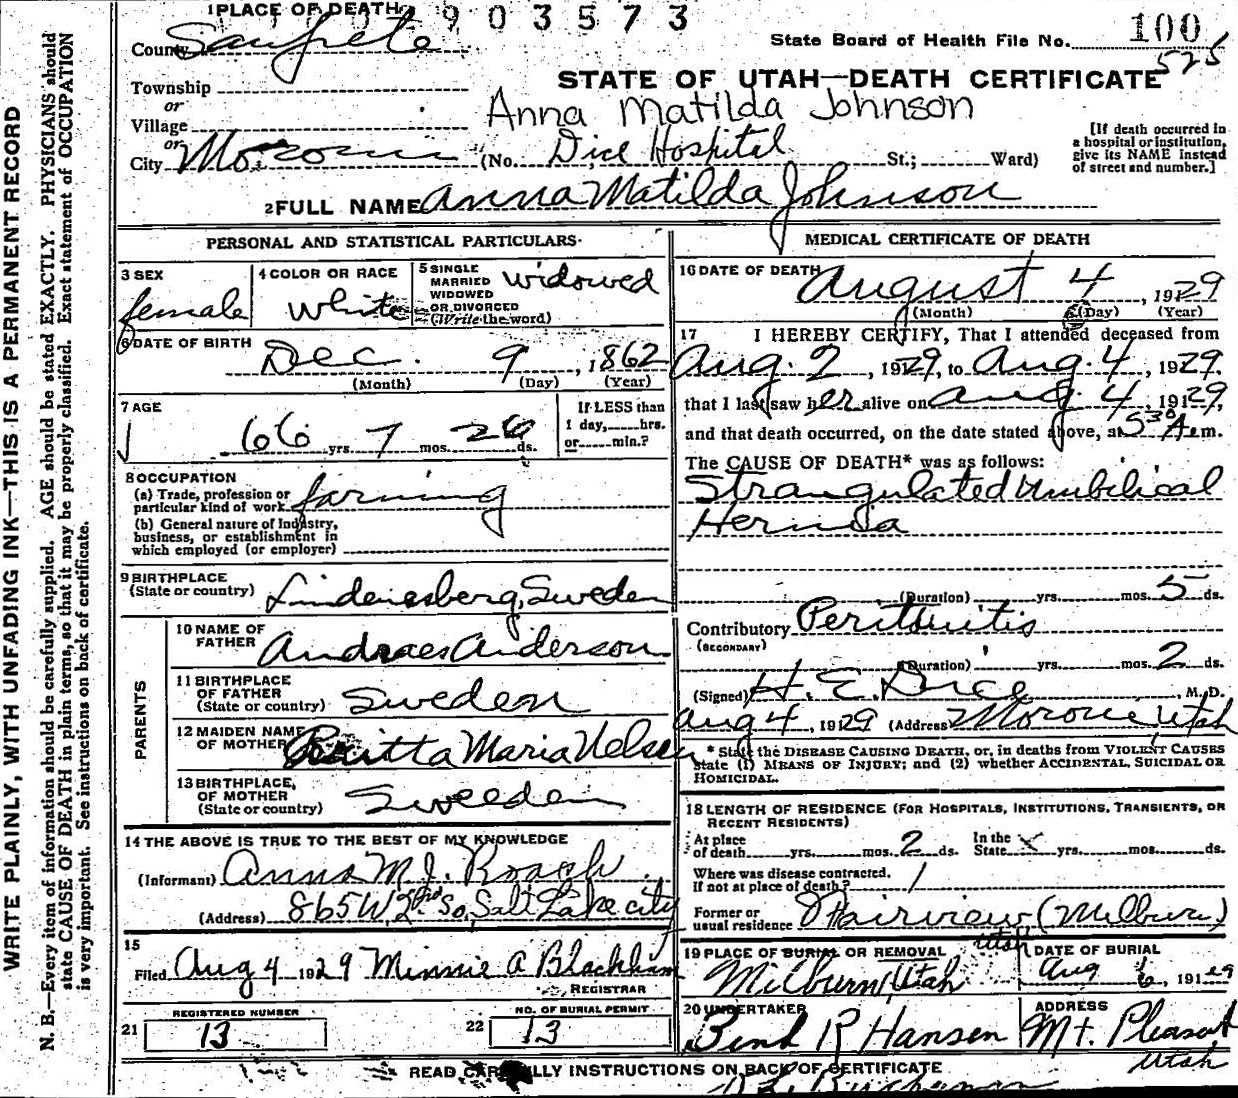 1 PLACE OF DEATH 903573
County Sanpete
State Board of Health File No. 100
525
Township
STATE OF UTAH—DEATH CERTIFICATE
or
Village
Anna Matilda Johnson
or
City Moroni (No. Dice Hospital St.; Ward)
[If death occurred in a hospital or institution, give its NAME instead of street and number.]
2 FULL NAME Anna Matilda Johnson
PERSONAL AND STATISTICAL PARTICULARS
3 SEX female
4 COLOR OR RACE White
5 SINGLE MARRIED WIDOWED OR DIVORCED (Write the word) widowed
6 DATE OF BIRTH Dec. 9, 1862
(Month) (Day) (Year)
7 AGE 66 yrs. 7 mos. 26 ds.
If LESS than 1 day, hrs. or min.?
8 OCCUPATION
(a) Trade, profession or particular kind of work farming
(b) General nature of Industry, business, or establishment in which employed (or employer)
9 BIRTHPLACE (State or country) Lindenesberg, Sweden
PARENTS
10 NAME OF FATHER Andraes Anderson
11 BIRTHPLACE OF FATHER (State or country) Sweden
12 MAIDEN NAME OF MOTHER Maria Nelsen
13 BIRTHPLACE, OF MOTHER (State or country) Sweeden
14 THE ABOVE IS TRUE TO THE BEST OF MY KNOWLEDGE
(Informant) Anna M. J. Roach
(Address) 865 W 2nd So, Salt Lake city
15
Filed Aug 4 1929 Minnie A Blackham
REGISTRAR
21 REGISTERED NUMBER 13
22 NO. OF BURIAL PERMIT 13
MEDICAL CERTIFICATE OF DEATH
16 DATE OF DEATH August 4, 1929
(Month) (Day) (Year)
17 I HEREBY CERTIFY, That I attended deceased from
Aug. 2, 1929, to Aug. 4, 1929.
that I last saw her alive on Aug. 4, 1929,
and that death occurred, on the date stated above, at 530 A.m.
The CAUSE OF DEATH* was as follows:
Strangulated Umbilical
Hernia
(Duration) yrs. mos. 5 ds.
Contributory Peritonitis
(SECONDARY)
(Duration) yrs. mos. 2 ds.
(Signed) H. E. Dice, M. D.
Aug 4, 1929 (Address) Moroni Utah
* State the DISEASE CAUSING DEATH, or, in deaths from VIOLENT CAUSES state (1) MEANS OF INJURY; and (2) whether ACCIDENTAL, SUICIDAL OR HOMICIDAL.
18 LENGTH OF RESIDENCE (FOR HOSPITALS, INSTITUTIONS, TRANSIENTS, OR RECENT RESIDENTS)
At place of death yrs. mos. 2 ds. In the State x yrs. mos. ds.
Where was disease contracted. If not at place of death?
Former or usual residence Fairview (Milburn) Utah
19 PLACE OF BURIAL OR REMOVAL Milburn, Utah
DATE OF BURIAL Aug 6, 1929
20 UNDERTAKER R Hansen
ADDRESS Mt. Pleasant Utah
READ CAREFULLY INSTRUCTIONS ON BACK OF CERTIFICATE
WRITE PLAINLY, WITH UNFADING INK—THIS IS A PERMANENT RECORD
N. B.—Every item of information should be carefully supplied. AGE should be stated EXACTLY. PHYSICIANS should
state CAUSE OF DEATH in plain terms, so that it may be properly classified. Exact statement of OCCUPATION
is very important. See instructions on back of certificate.